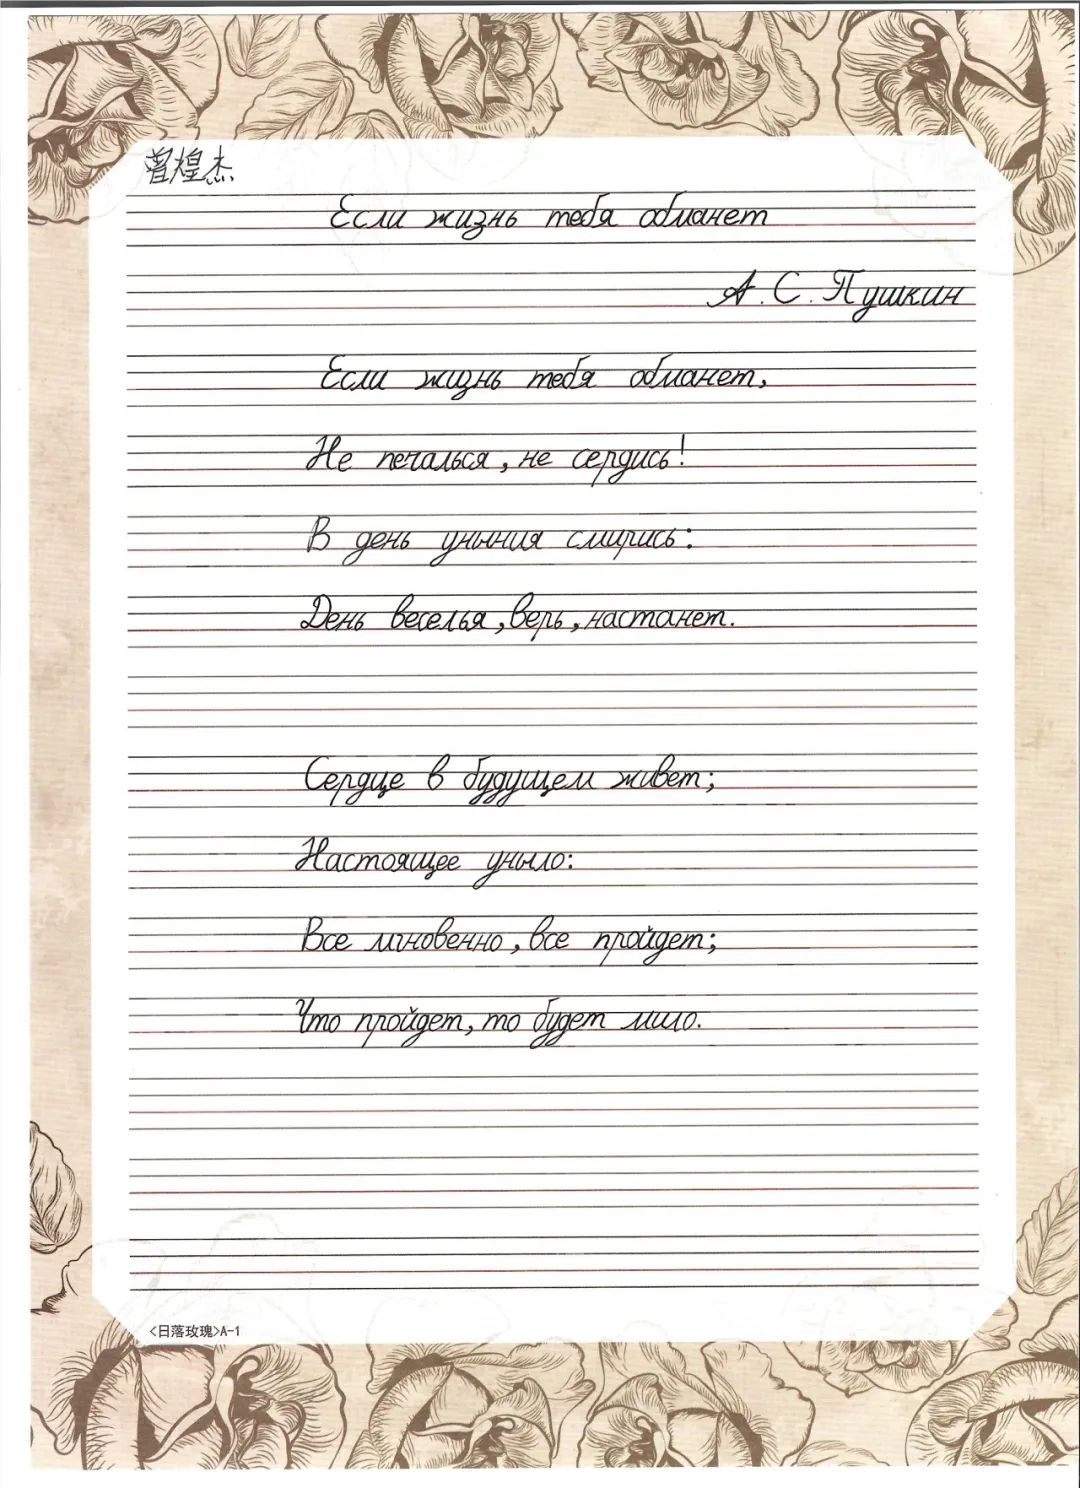 曾煌杰
Если жизнь тебя обманет
А. С. Пушкин
Если жизнь тебя обманет,
Не печалься, не сердись!
В день уныния смирись:
День веселья, верь, настанет.
Сердце в будущем живет;
Настоящее уныло:
Все мгновенно, все пройдет;
Что пройдет, то будет мило.
<日落玫瑰>A-1